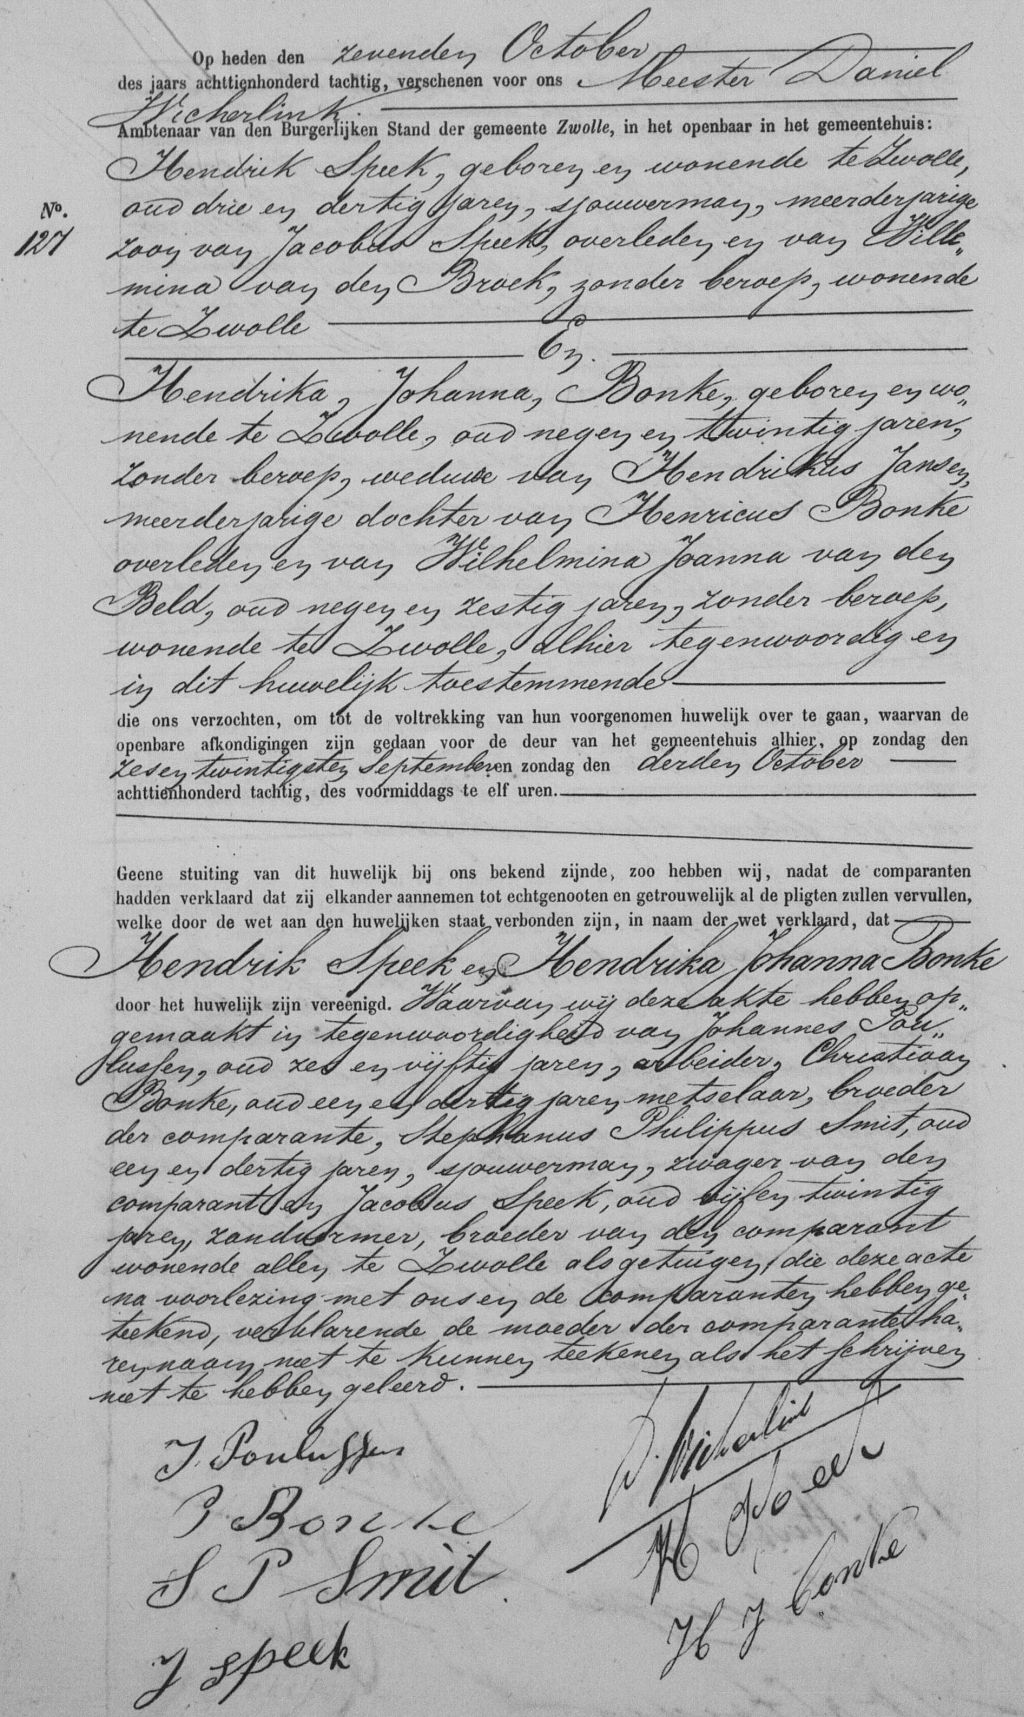 Op heden den zevenden October
des jaars achttienhonderd tachtig, verschenen voor ons Meester Daniel
Wicherlink
Ambtenaar van den Burgerlijken Stand der gemeente Zwolle, in het openbaar in het gemeentehuis:
Hendrik Speek, geboren en wonende te Zwolle,
No. oud drie en dertig jaren, sjouwerman, meerderjarige
127 zoon van Jacobus Speek, overleden en van Wille„
mina van den Broek, zonder beroep, wonende
te Zwolle
En.
Hendrika, Johanna, Bonke, geboren en wo„
nende te Zwolle, oud negen en twintig jaren,
zonder beroep, weduwe van Hendrikus Jansen,
meerderjarige dochter van Henricus Bonke
overleden en van Wilhelmina Joanna van den
Beld, oud negen en zestig jaren, zonder beroep,
wonende te Zwolle, alhier tegenwoordig en
in dit huwelijk toestemmende
die ons verzochten, om tot de voltrekking van hun voorgenomen huwelijk over te gaan, waarvan de
openbare afkondigingen zijn gedaan voor de deur van het gemeentehuis alhier, op zondag den
zesentwintigsten September en zondag den derden October
achttienhonderd tachtig, des voormiddags te elf uren.
Geene stuiting van dit huwelijk bij ons bekend zijnde, zoo hebben wij, nadat de comparanten
hadden verklaard dat zij elkander aannemen tot echtgenooten en getrouwelijk al de pligten zullen vervullen,
welke door de wet aan den huwelijken staat verbonden zijn, in naam der wet verklaard, dat
Hendrik Speek en Hendrika Johanna Bonke
door het huwelijk zijn vereenigd. Waarvan wij deze akte hebben op„
gemaakt in tegenwoordigheid van Johannes Pou„
lussen, oud zes en vijftig jaren, arbeider, Christiaan
Bonke, oud een en dertig jaren metselaar, broeder
der comparante, Stephanus Philippus Smit, oud
een en dertig jaren, sjouwerman, zwager van den
comparant en Jacobus Speek, oud vijf en twintig
jaren, zandvormer, broeder van den comparant
wonende allen te Zwolle als getuigen, die deze acte
na voorlezing met ons en de comparanten hebben ge„
teekend, verklarende de moeder der comparante ha„
ren naam niet te kunnen teekenen als het schrijven
niet te hebben geleerd.
J. Poulussen
D. Wicherlink
Bonke
H Speek
S P Smit
H J Bonke
J speek